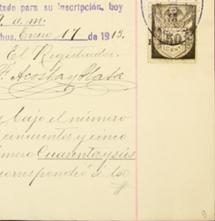 tado para su inscripción, hoy
9 a.m.
hua. Enero 17 de 1913.
El Registrador.
Acosta y Plata
y bajo el número
cincuenta y cinco
número Cuarenta y seis
correspondió a la